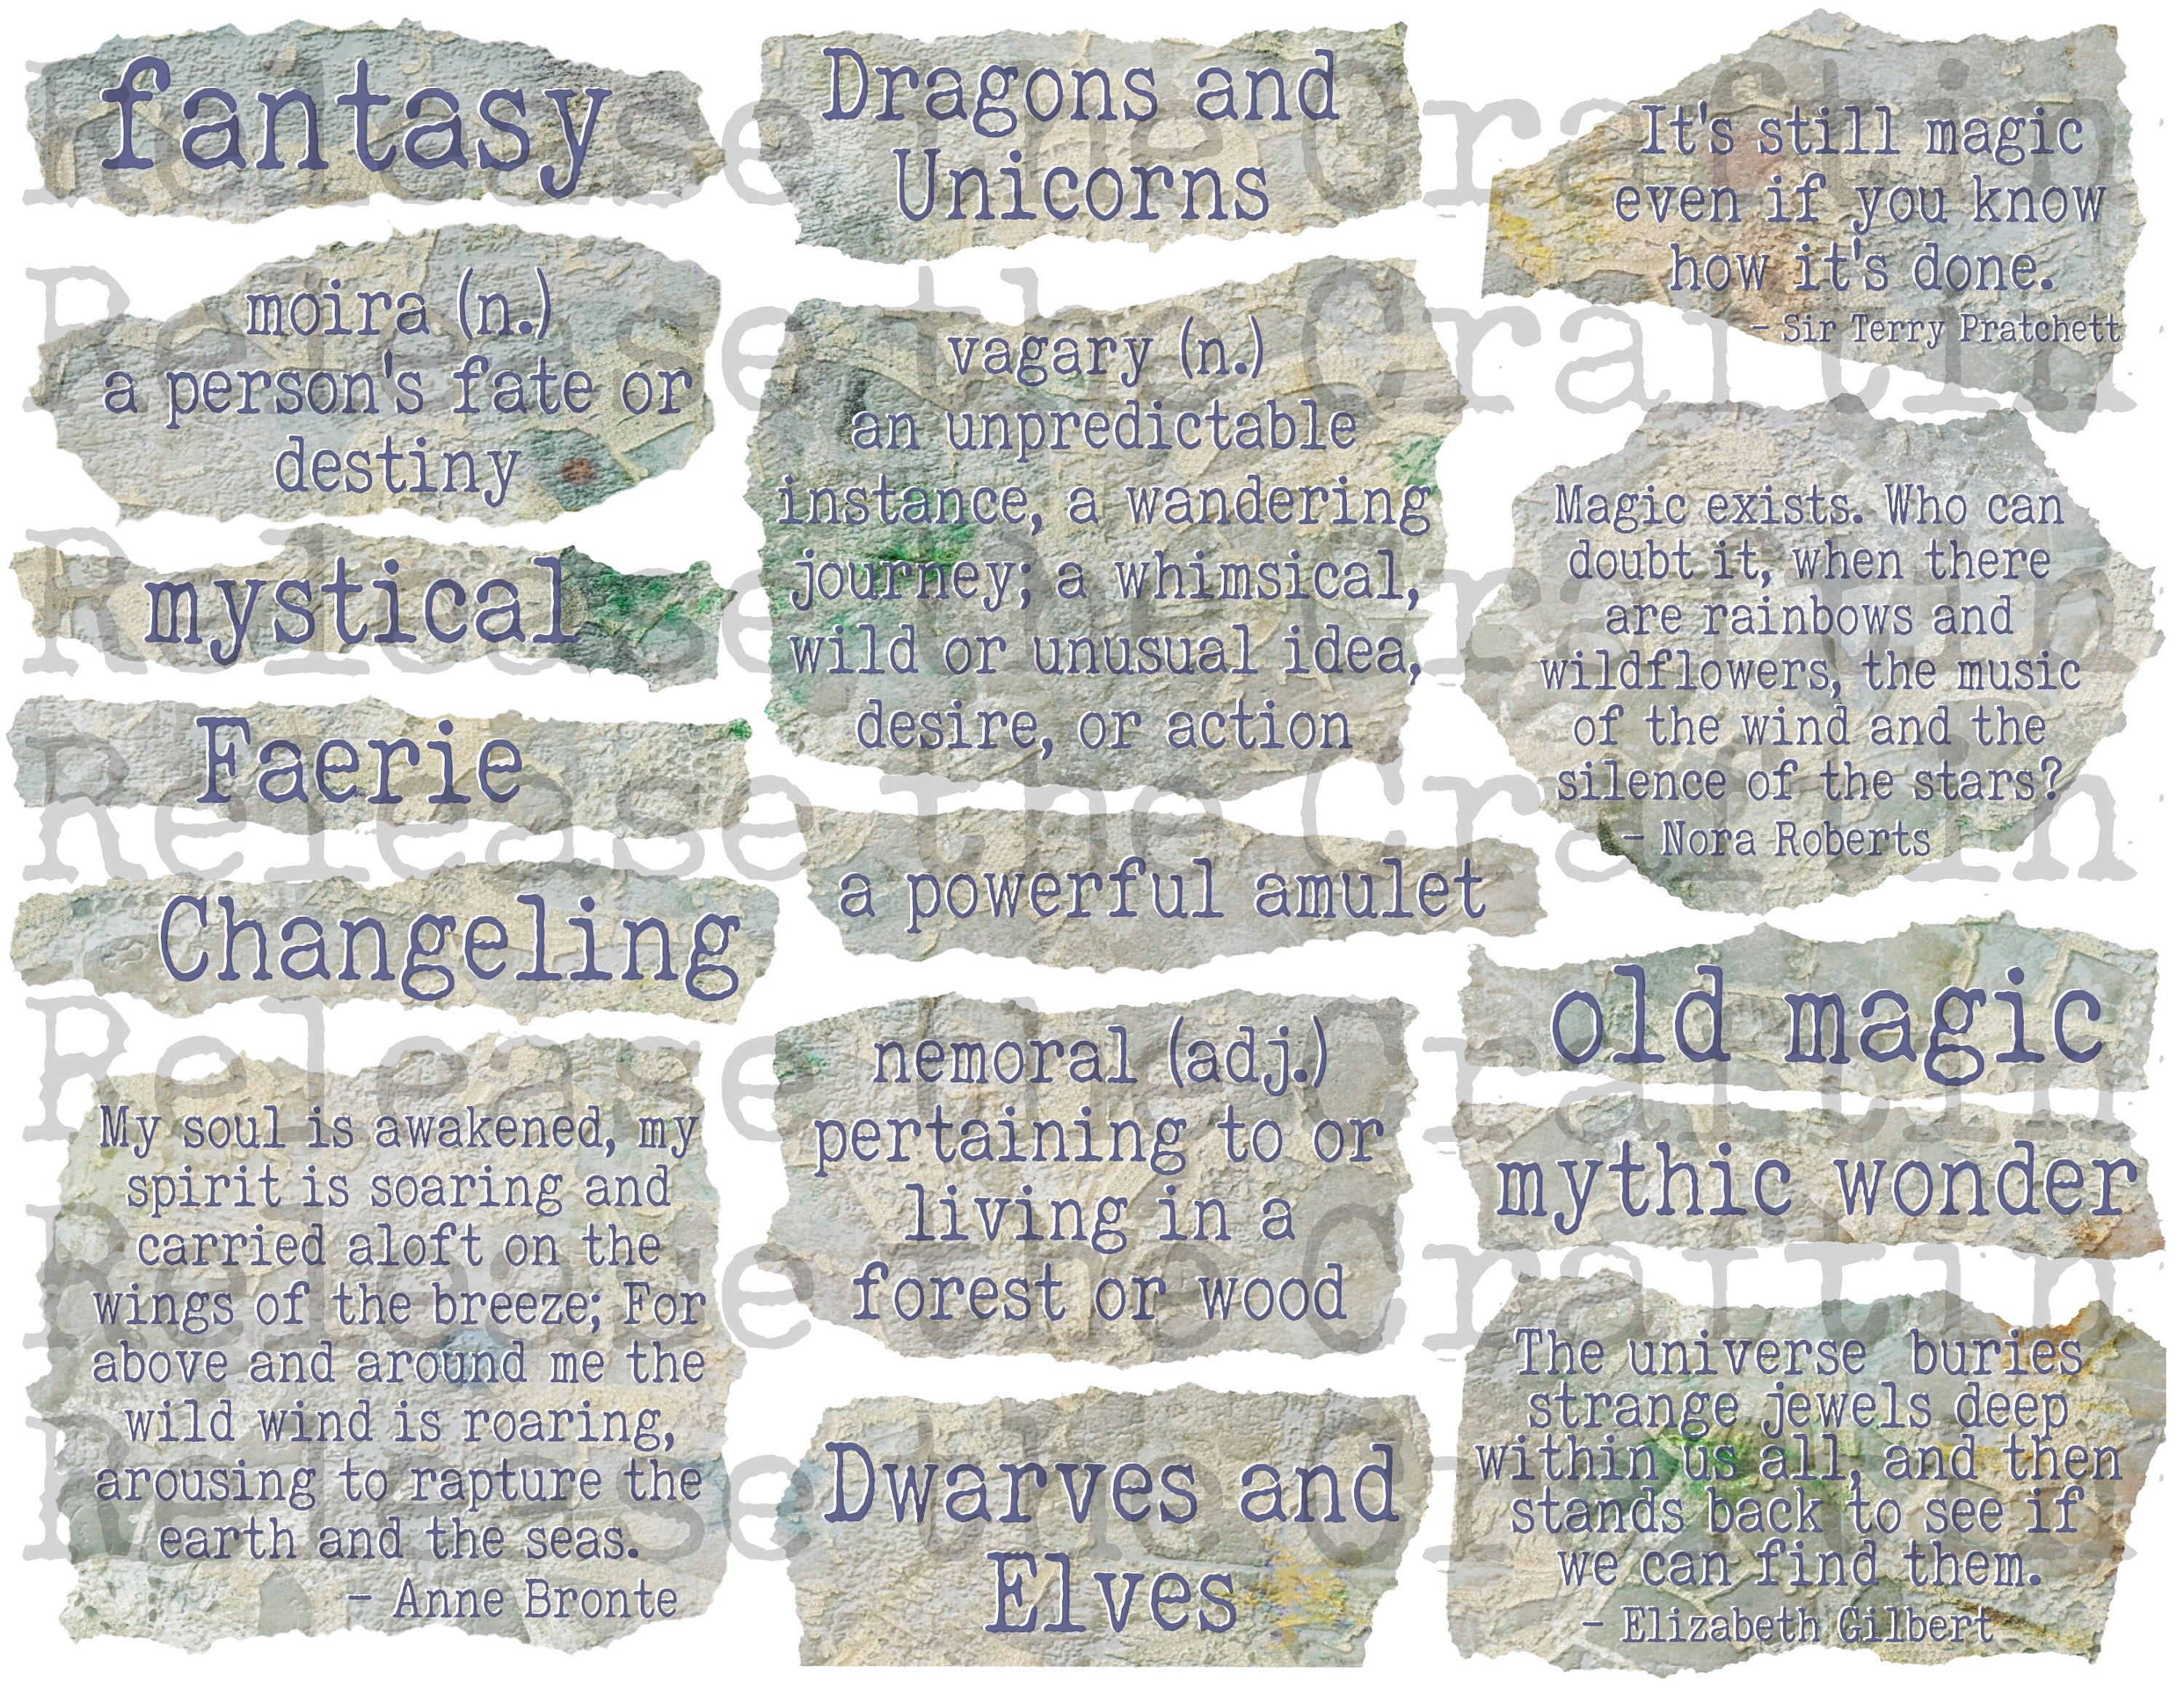 fantasy
moira (n.)
a person's fate or
destiny
mystical
Faerie
Changeling
My soul is awakened, my
spirit is soaring and
carried aloft on the
wings of the breeze; For
above and around me the
wild wind is roaring,
arousing to rapture the
earth and the seas.
- Anne Bronte
Dragons and
Unicorns
vagary (n.)
an unpredictable
instance, a wandering
journey; a whimsical,
wild or unusual idea,
desire, or action
a powerful amulet
nemoral (adj.)
pertaining to or
living in a
forest or wood
Dwarves and
Elves
It's still magic
even if you know
how it's done.
- Sir Terry Pratchett
Magic exists. Who can
doubt it, when there
are rainbows and
wildflowers, the music
of the wind and the
silence of the stars?
- Nora Roberts
old magic
mythic wonder
The universe buries
strange jewels deep
within us all, and then
stands back to see if
we can find them.
- Elizabeth Gilbert
Release the Craftin
Release the Craftin
Release the Craftin
Release the Craftin
Release the Craftin
Release the Craftin
Release the Craftin